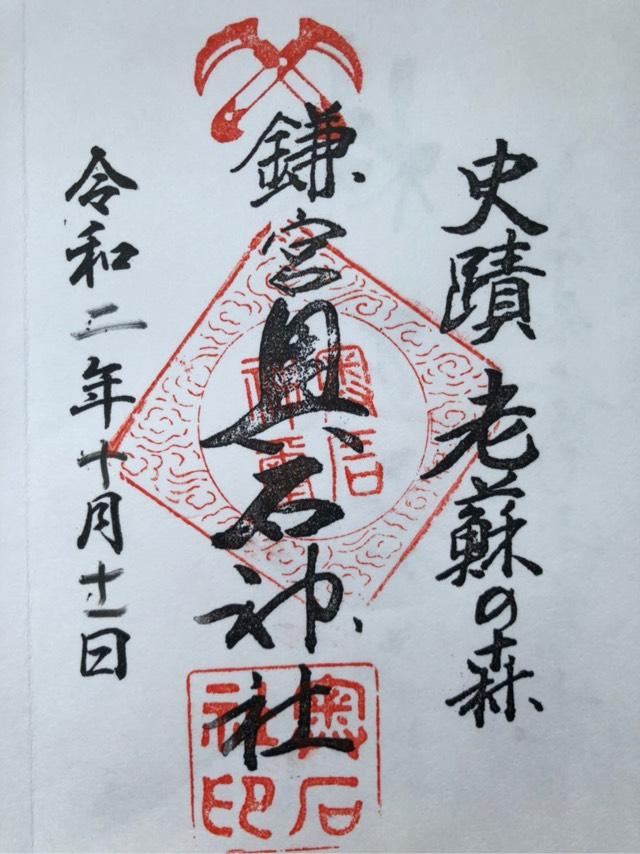 史蹟 老蘇の森
鎌宮奥石神社
奥石
神社
奥石
社印
令和二年十月十一日